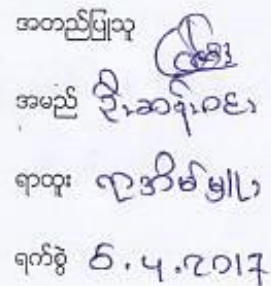 အတည်ပြုသူ
အမည် ဦးဆန်းဝင်း
ရာထူး ရာအိမ်မှူး
ရက်စွဲ 6.4.2017